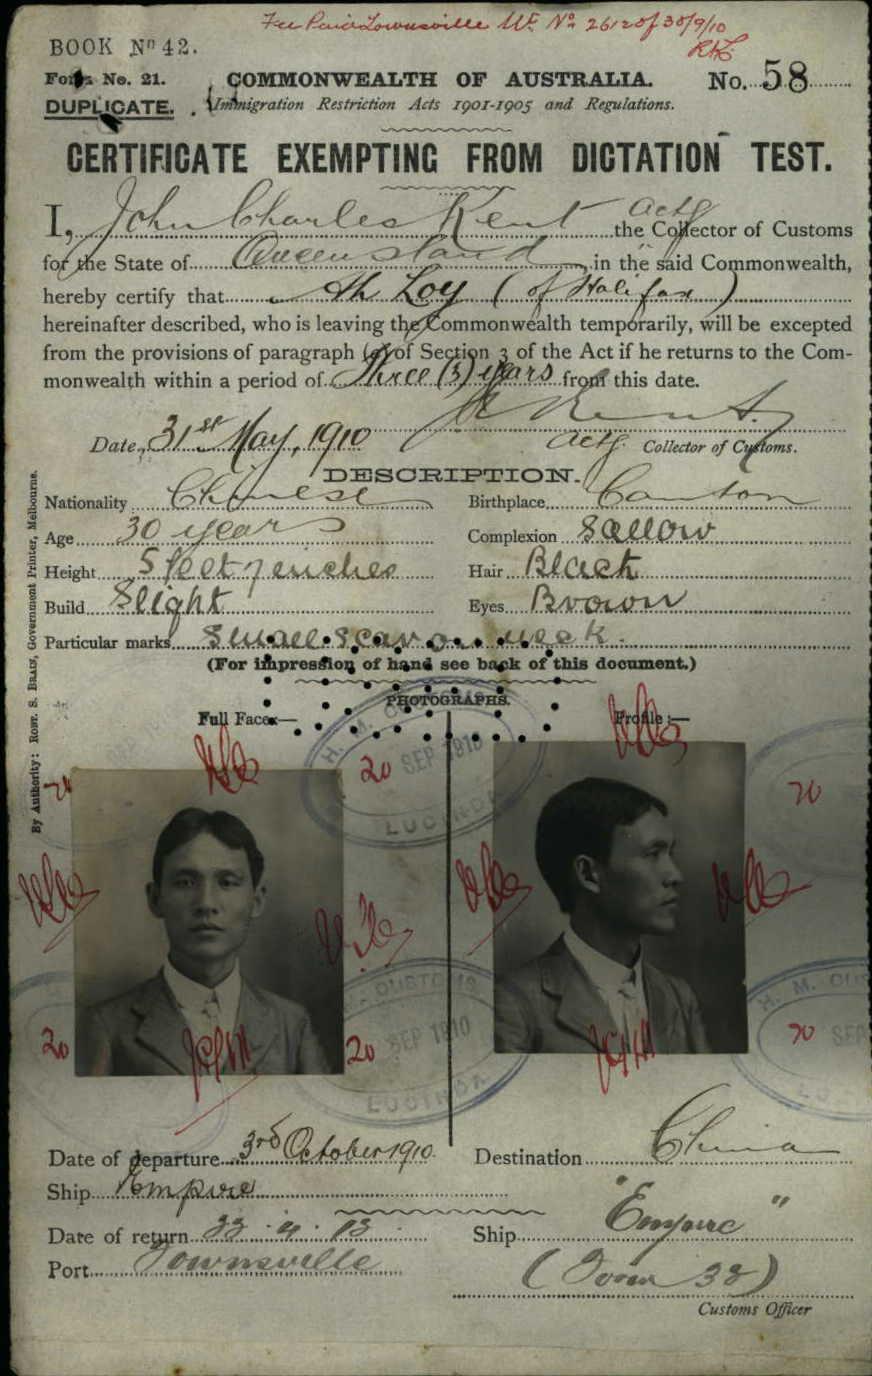 Fee Paid Townsville M.E. No 2612 of 30/9/10
BOOK No 42.
Form No. 21.
COMMONWEALTH OF AUSTRALIA.
No. 58
DUPLICATE.
Immigration Restriction Acts 1901-1905 and Regulations.
CERTIFICATE EXEMPTING FROM DICTATION TEST.
I, John Charles Kent actg the Collector of Customs
for the State of Queensland in the said Commonwealth,
hereby certify that Ah Loy (of Halifax)
hereinafter described, who is leaving the Commonwealth temporarily, will be excepted
from the provisions of paragraph (a) of Section 3 of the Act if he returns to the Com-
monwealth within a period of Three (3) years from this date.
Date, 31st May, 1910
actg. Collector of Customs.
DESCRIPTION.
Nationality Chinese
Birthplace Canton
Age 30 years
Complexion Sallow
Height 5 feet 7 inches
Hair Black
Build Slight
Eyes Brown
Particular marks Small scar on neck.
(For impression of hand see back of this document.)
PHOTOGRAPHS.
Full Face:—
Profile:—
By Authority: ROBT. S. BRAIN, Government Printer, Melbourne.
H. M. CUSTOMS
SEP 1910
LUCINDA
20
20
20
20
H. M. CUSTOMS
SEP 1910
LUCINDA
H. M. CUS
SEP
LUCINDA
Date of departure 3rd October 1910.
Destination China
Ship Empire
Date of return 22.4.13
Ship "Empire"
Port Townsville
(Form 32)
Customs Officer